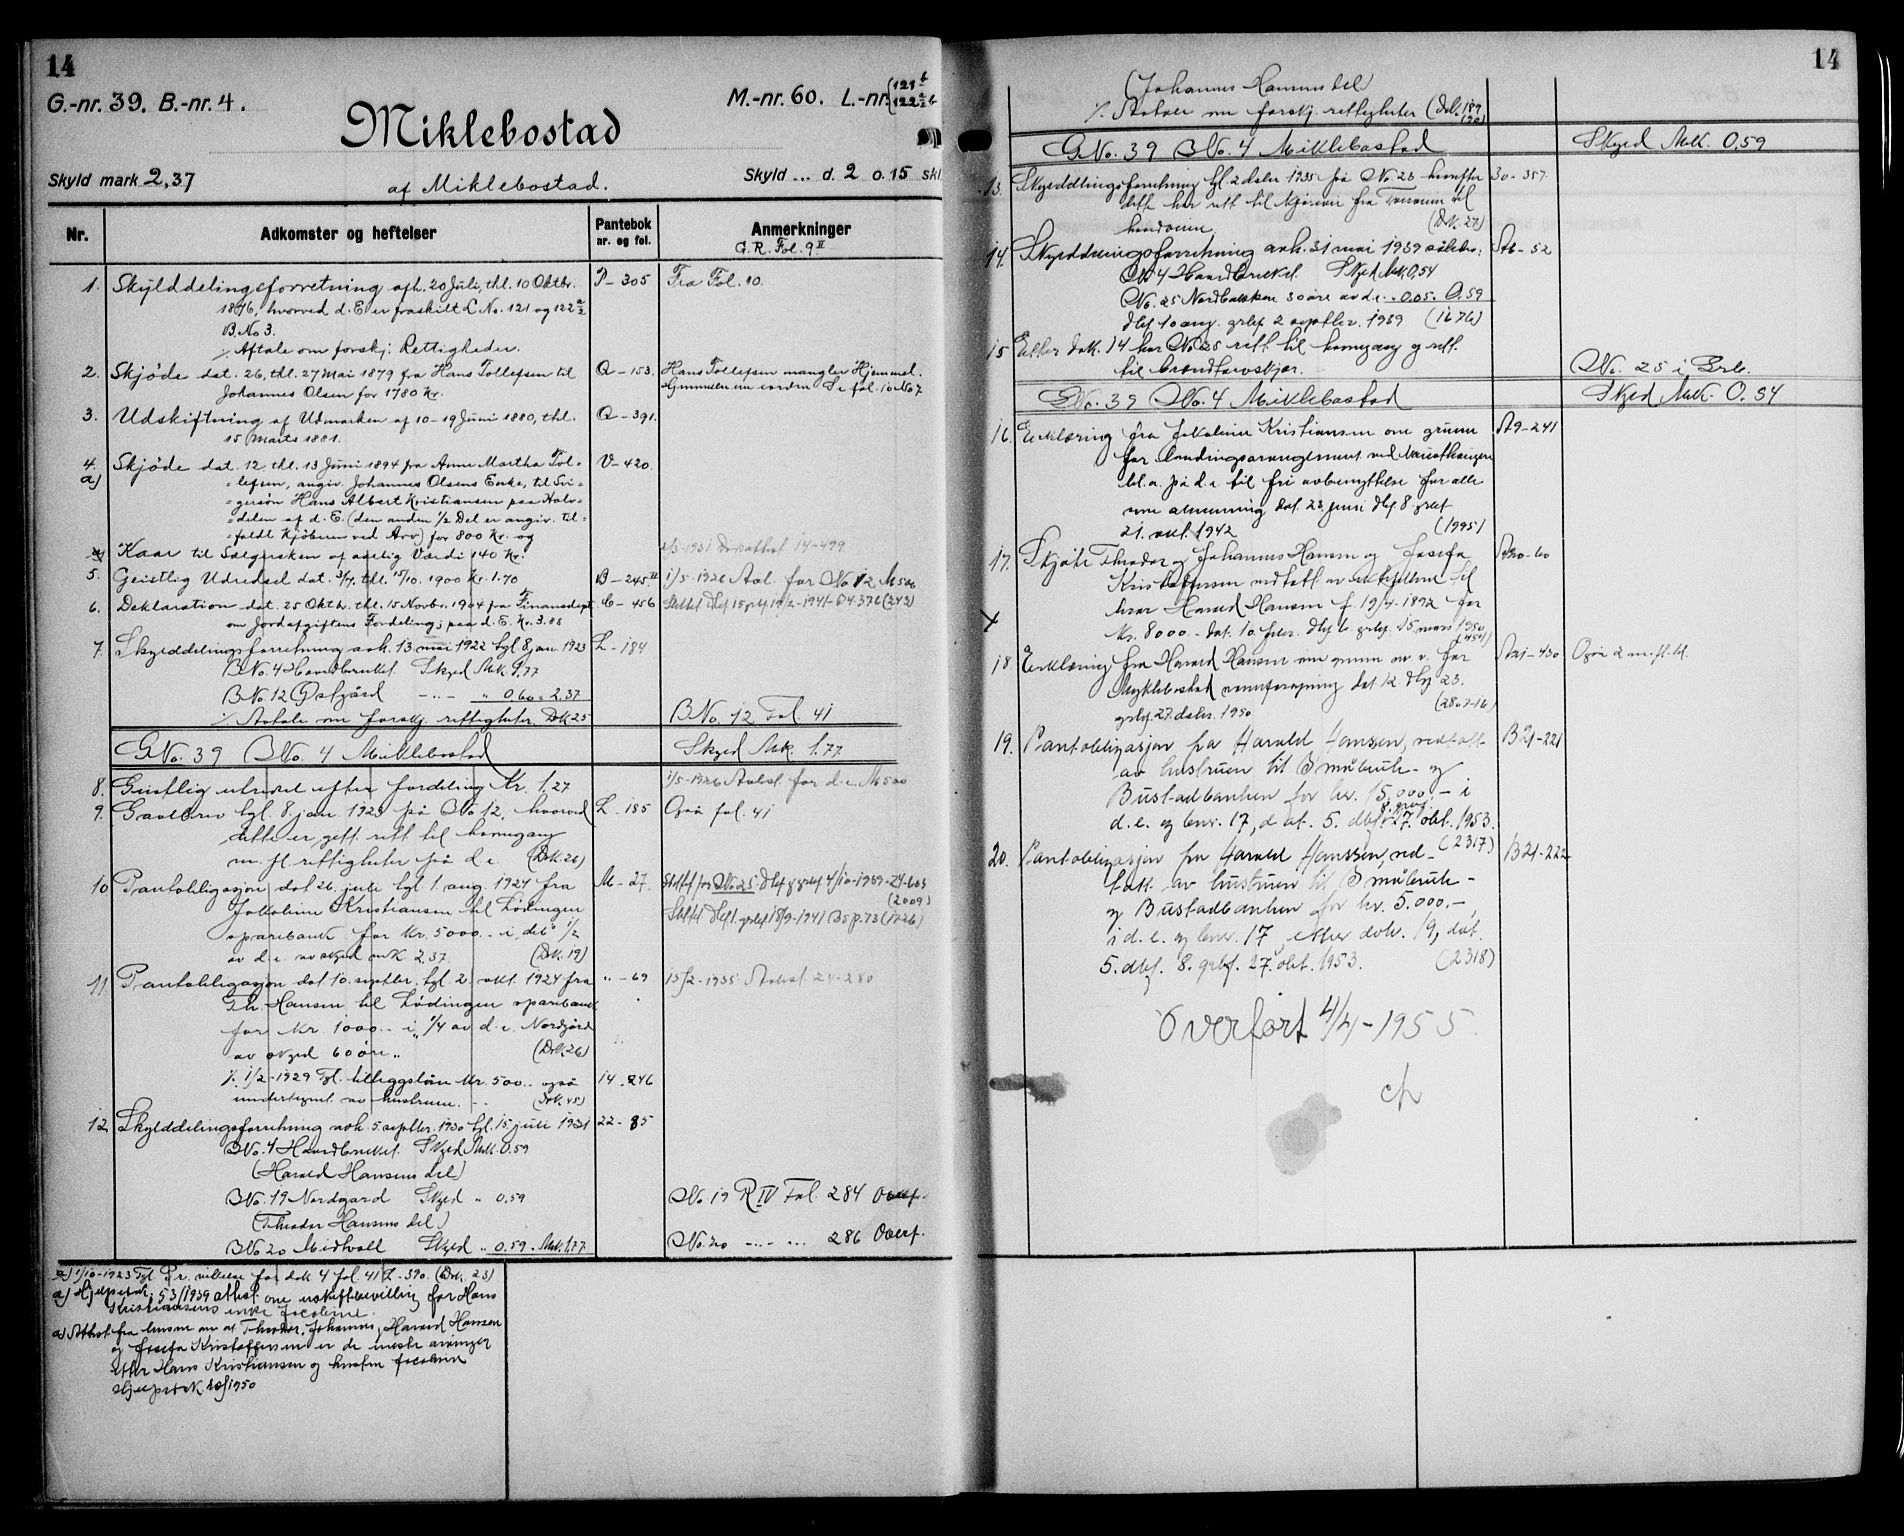 14
G.-nr. 39. B.-nr. 4.
M.-nr. 60. L.-nr. (121 b
122 a/2 b
Miklebostad
Skyld mark 2,37
af Miklebostad.
Skyld ... d. 2 o. 15 skl
Nr.
Adkomster og heftelser
Pantebok nr. og fol.
Anmerkninger
G.R. Fol. 9 II
1. Skylddelingsforretning afh. 20 Juli, thl. 10 Oktbr. P - 305 Fra Fol. 10.
1876, hvorved d. E er fraskilt L No. 121 og 122 a/2
B No 3.
% Aftale om forskj. Rettigheder.
2. Skjöde dat. 26, thl. 27 Mai 1879 fra Hans Tollefsen til Q - 153. Hans Tollefsen mangler Hjemmel.
Johannes Olsen for 1780 Kr.
Se fol. 10 No 7
3. Udskiftning af Udmarken af 10-19 Juni 1880, thl. Q - 391.
15 Marts 1881.
4. Skjöde dat. 12, thl. 13 Juni 1894 fra Anne Martha Tol= V - 420.
a) =lefsen, angiv. Johannes Olsens Enke, til Svi=
=gersön Hans Albert Kristiansen paa Halv=
=delen af d. E. (den anden 1/2 Del er angiv. til=
=faldt Kjöberen ved Arv) for 800 Kr. og
Kaar til Sælgersken af aarlig Værdi 140 Kr. 14-499
5. Geistlig Udredsel dat. 3/7, thl. 15/10. 1900 Kr. 1.70 B - 245 II 1/5-1926 Avl. for No 12 M 500
6. Deklaration dat. 25 Oktbr. thl. 15 Novbr. 1904 fra Finansdept. C - 456
om Jordafgiftens Fordeling; paa d. E. Kr. 3.88
7. Skylddelingsforretning avh. 13 mai 1922 tgl. 8 jan. 1923 L - 184
B No. 4 Hovedbruket Skyld Mk 1.77
B No. 12 Østgård -"- " 0.60 = 2.37
% Avtale om forskj. rettigheter Dok 25 B No. 12 Fol. 41
G No. 39 B No. 4 Miklebostad Skyld Mk. 1.77
8. Geistlig utredsel efter fordeling Kr. 1.27 1/5-1926 Avlst. for d.e. M 500
9. Gavebrev tgl. 8. jan. 1923 på B No 12, hvorved L - 185 Også fol. 41
dette er gitt rett til havnegang
m. fl. rettigheter på d.e. (Dok. 26)
10 Pantobligasjon dat 26. juli tgl 1. aug. 1924 fra M - 27.
Jokoline Kristiansen til Lödingen (2009)
sparebank for Kr. 5000.- i det 1/2
av d.e. av skyld mk 2.37. (Dok. 19)
11 Pantobligasjon dat 10. septbr. tgl. 2. okt. 1924 fra " - 69 15/2-1935 Avlst. 24-280
Th. Hansen til Lödingen sparebank
for Kr. 1000.- i 1/4 av d.e. Nordjord
av skyld 60 öre. (Dok. 26)
%. 1/2-1929 Tgl. tilleggslån Kr. 500.- også 14 - 246
undertegnet av hustruen. (Dok. 45)
12 Skylddelingsforretning avh. 5 septbr. 1930 tgl. 15 juli 1931 22 - 85
B No. 4 Hovedbruket. Skyld Mk 0.59
(Harald Hansens del)
B No. 19 Nordgard Skyld " 0,59 No. 19 R IV Fol. 284 Overf.
(Theodor Hansens del)
B No 20 Midtvoll Skyld " 0.59 = Mk. 1.77 No. 20 -"- 286 Overf.
a) 1/10-1923 Tgl. Pr. vilelse for dok 4 fol. 41 L - 390. (Dok. 23)
a) Hjelpedok. 53/1939 attest om uskiftebevilling for Hans
Kristiansens enke Jocoline.
a) Attest fra lensm. om at Theodor, Johannes, Harald Hansen
og Josefa Kristoffersen er de eneste arvinger
etter Hans Kristiansen og hustru Jocoline
Hjelpedok 1950
14
(Johannes Hansens del)
%. Avtale om forskj. rettigheter (Dok. 189
190)
G No. 39 B No. 4 Miklebostad Skyld Mk. 0,59
13. Skylddelingsforretning tgl. 2 desbr 1935 på No. 23 hvorefter 30 - 357
dette har rett til kjørevei fra
(Dok. 27)
14. Skylddelingsforretning avh. 31 mai 1939 således: St 6 - 52
No 4 Hovedbruket. Skyld Mk. 0,54
No. 25 Nordbakken 30 øre av d.e. - 0.05 = 0.59
dbf 10 aug. grbf 2 septbr. 1939 (1676)
15 Etter dok. 14 har No 25 rett til havnegang og rett
til brendtorvskjær. No. 25 i Grb.
G No. 39 B No. 4 Miklebostad Skyld Mk. 0.54
16. Erklæring fra Jokoline Kristiansen om grunn St 9 - 241
for landingsarrangement ved Nausthaugen
bl.a. på d.e. til fri avbenyttelse for alle
som almenning dat. 23 juni dbf. 8 grbf
21. okt. 1942 (1995)
17. Skjøte Theodor og Johannes Hansen og Josefa St 20 - 60
Kristoffersen til
X bror Harald Hansen f. 19/4-1892 for
Kr. 8000.- dat. 10. febr. dbf 6. grbf. 15 mars 1950
18 Erklæring fra Harald Hansen om grunn m.v. for St 21 - 430 Også 2 m. fl. bl.
Myklebostad vannforsyning dat. 12. dbf 23.
grbf. 27. desbr. 1950 (2807-16)
19. Pantobligasjon fra Harald Hanssen, vedtatt B 21 - 221
av hustruen til Småbruk- og
Bustadbanken for kr. 15.000.- i
d.e. og bnr. 17, dat. 5. dbf. 8. grbf. 27. okt. 1953.
(2317)
20. Pantobligasjon fra Harald Hanssen, ved- B 21 - 222
tatt av hustruen til Småbruk-
og Bustadbanken for kr. 5.000.-,
i d.e. og bnr. 17, etter dok. 19, dat.
5. dbf. 8. grbf. 27. okt. 1953. (2318)
Overført 4/4-1955.